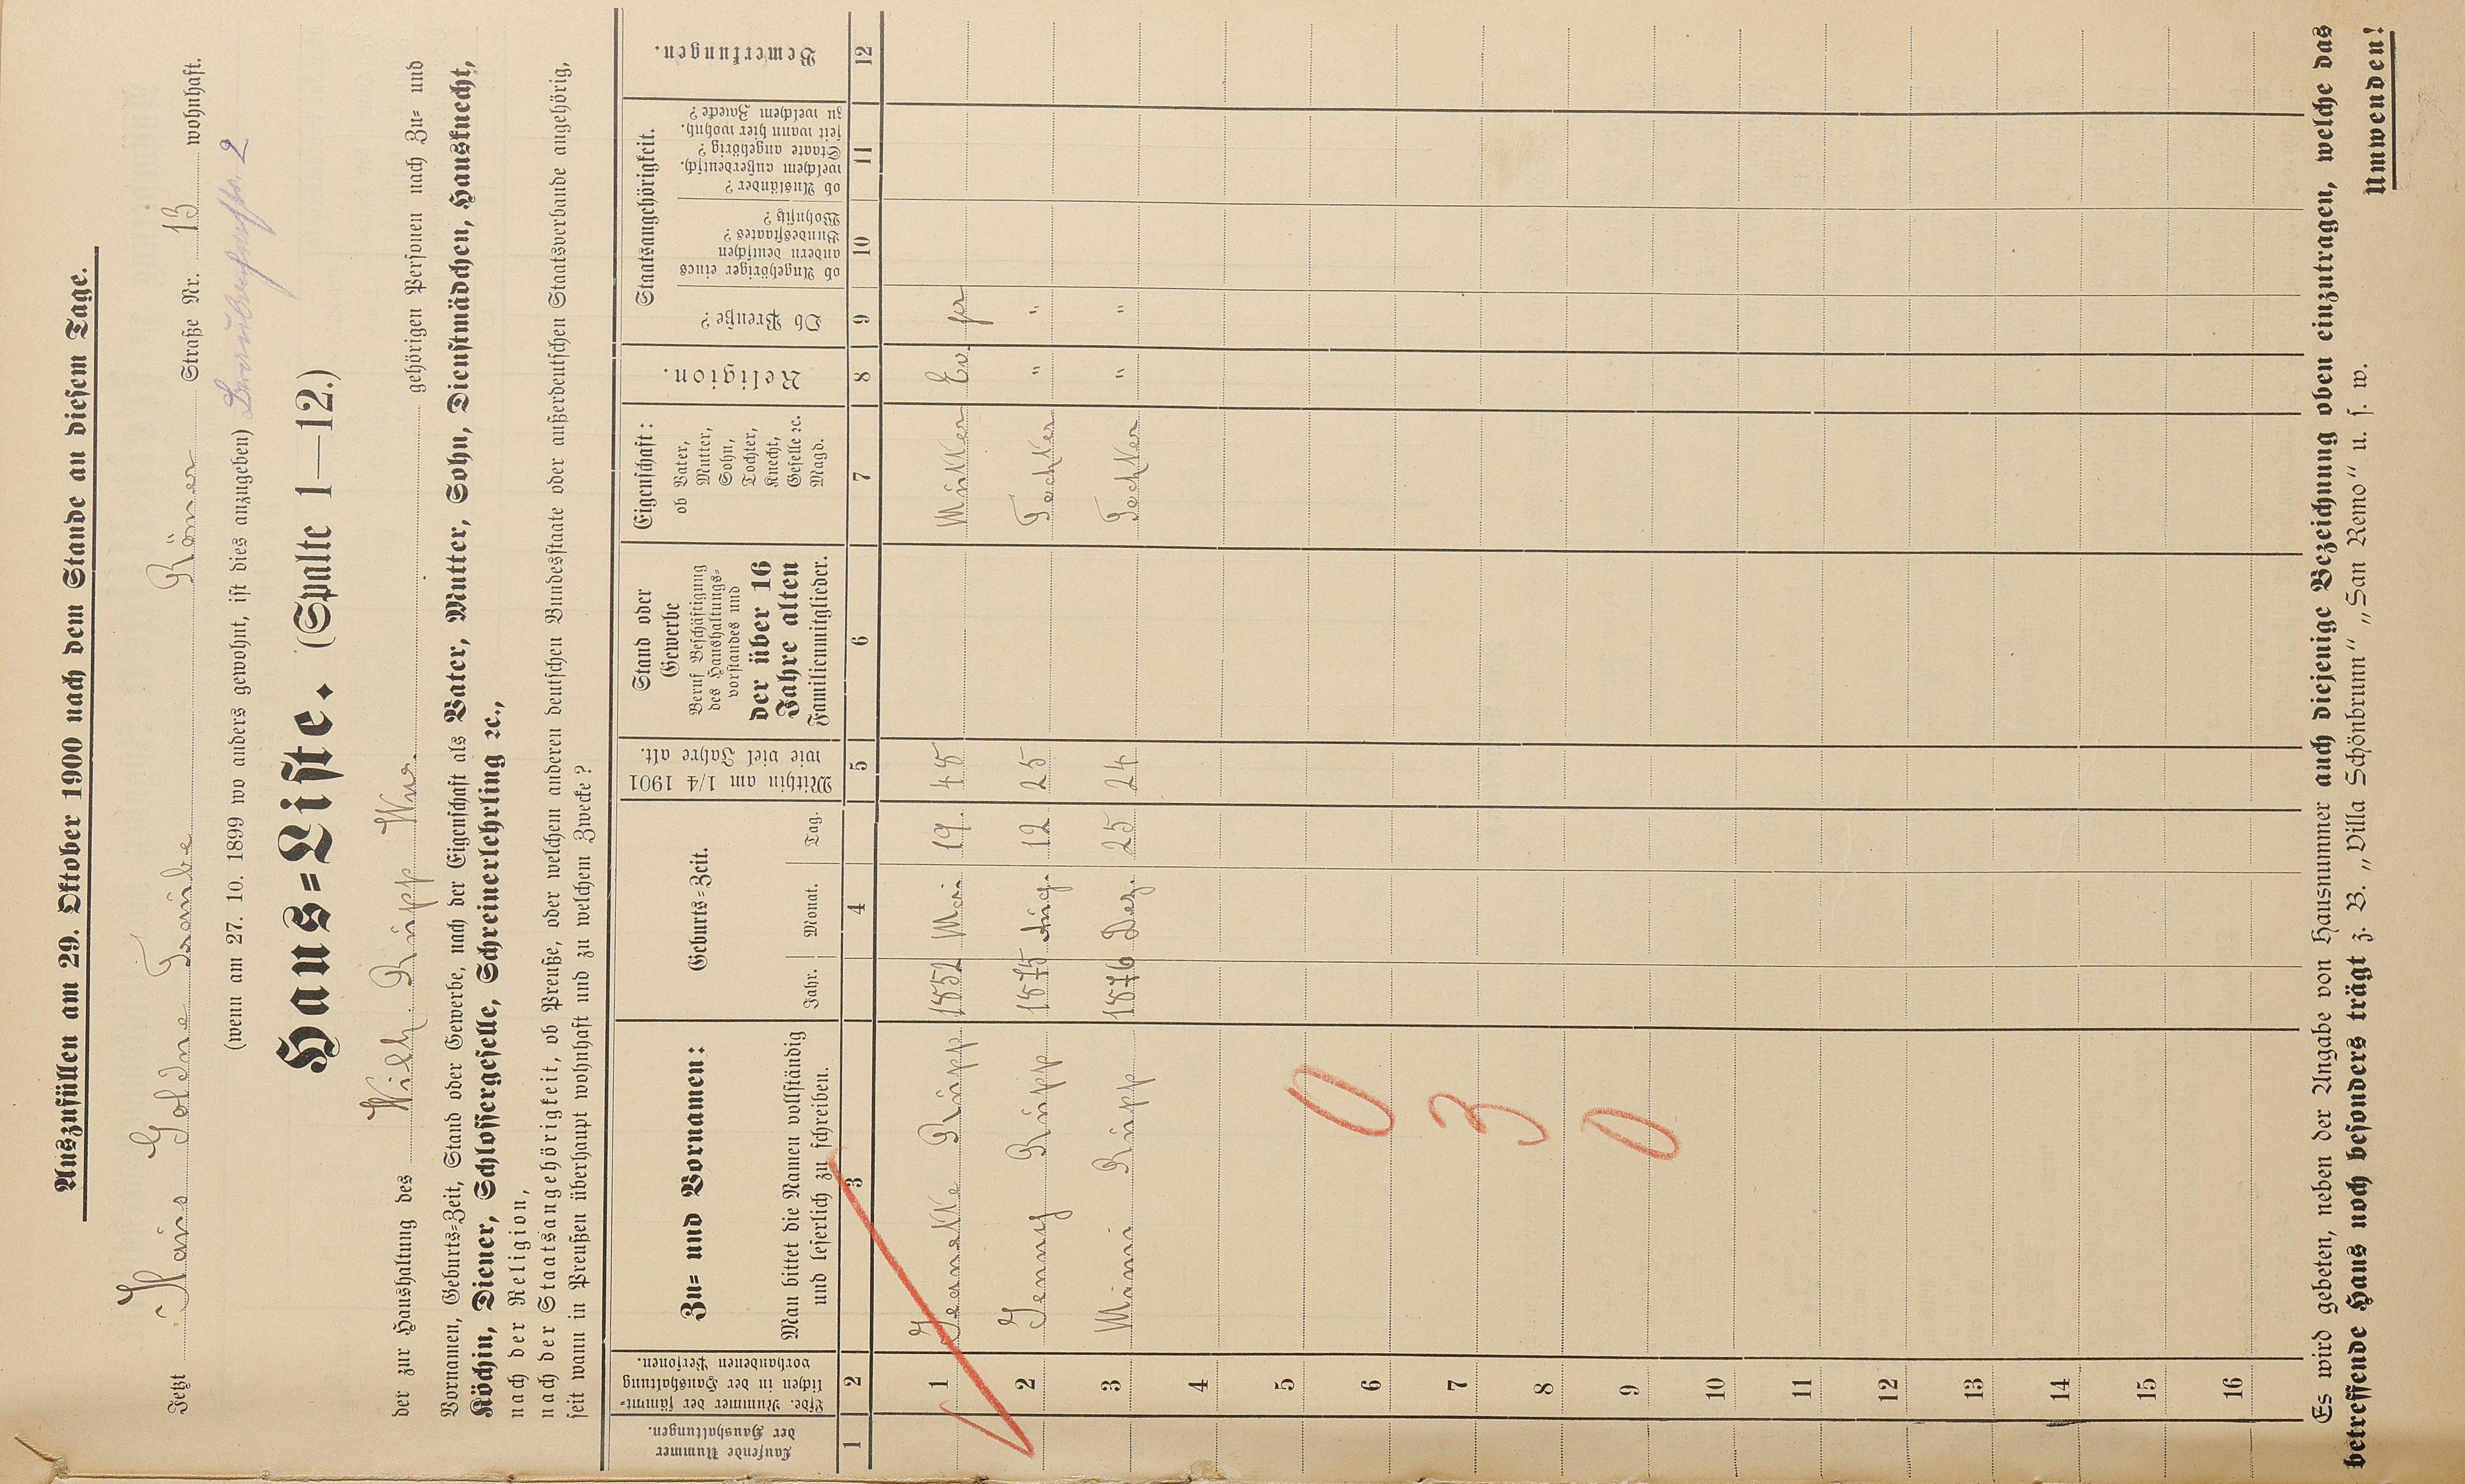 Auszufüllen am 29. Oktober 1900 nach dem Stande an diesem Tage.
Jetzt Haus Goldne Traube Römer Straße Nr. 13 wohnhaft.
(wenn am 27. 10. 1899 wo anders gewohnt, ist dies anzugeben)
Haus=Liste. (Spalte 1—12.)
der zur Haushaltung des Wilh. Rupp Wwe. gehörigen Personen nach Zu= und
Vornamen, Geburts=Zeit, Stand oder Gewerbe, nach der Eigenschaft als Vater, Mutter, Sohn, Dienstmädchen, Hausknecht,
Köchin, Diener, Schlossergeselle, Schreinerlehrling ꝛc.,
nach der Religion,
nach der Staatsangehörigkeit, ob Preuße, oder welchem anderen deutschen Bundesstaate oder außerdeutschen Staatsverbande angehörig,
seit wann in Preußen überhaupt wohnhaft und zu welchem Zwecke?
Laufende Nummer
der Haushaltungen.
Lfde. Nummer der sämmt=
lichen in der Haushaltung
vorhandenen Personen.
Zu= und Vornamen:
Man bittet die Namen vollständig
und leserlich zu schreiben.
Geburts=Zeit.
Jahr. Monat. Tag.
Mithin am 1/4 1901
wie viel Jahre alt.
Stand oder
Gewerbe
Beruf Beschäftigung
des Haushaltungs=
vorstandes und
der über 16
Jahre alten
Familienmitglieder.
Eigenschaft:
ob Vater,
Mutter,
Sohn,
Tochter,
Knecht,
Geselle ꝛc.
Magd.
Religion.
Staatsangehörigkeit.
Ob
Preuße?
ob Angehöriger eines
andern deutschen
Bundesstaates?
Wohnsitz?
ob Ausländer?
welchem außerdeutsch.
Staate angehörig?
seit wann hier wohnh.
zu welchem Zwecke?
Bemerkungen.
1 2 3 4 5 6 7 8 9 10 11 12
1 Jeanette Rupp 1852 Mai 19. 48 Mutter Ev. pr
2 Jenny Rupp 1875 Aug. 12 25 Tochter " "
3 Minni Rupp 1876 Dez. 25 24 Tochter " "
4
5
6
7
8
9
10
11
12
13
14
15
16
0
3
0
Es wird gebeten, neben der Angabe von Hausnummer auch diejenige Bezeichnung oben einzutragen, welche das
betreffende Haus noch besonders trägt z. B. „Villa Schönbrunn" „San Remo" u. s. w.
Umwenden!